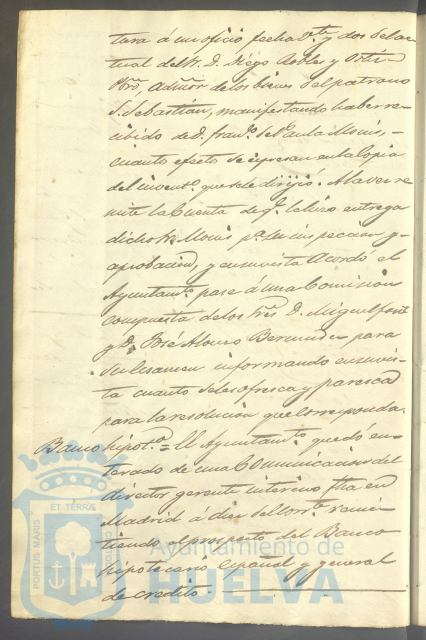 tura á un oficio fecha Vte. y dos del ac
tual del Sr. D. Diego Robles y Ortiz
Pbro, admor de los bienes del patrono
S. Sebastián, manifestando haber re
cibido de D. Franco. de Paula Monis,
cuanto efecto se espresan en la Copia
del invento. que se le dirijió. Ala vez re
mite la Cuenta de que le hizo entrega
dicho Sr. Monis pa. su inspeccion y
aprobacion, y en su vista Acordó el
Ayuntamto. pase á una Comision
compuesta de los Sres. D. Miguel
y D. José Alonso Bermudez para
su Ecsamen informando en su vis
ta cuanto se les ofresca y paresca
para la resolucion que corresponda.
Banco hipoto. = El Ayuntamto. quedó en
terado de una Comunicacion del
director gerente interino fha en
Madrid á diez del corrte. remi
tiendo el prospecto del Banco
hipotecario español y general
de credito.
PORTUS MARIS ET TERRÆ
Ayuntamiento de
HUELVA